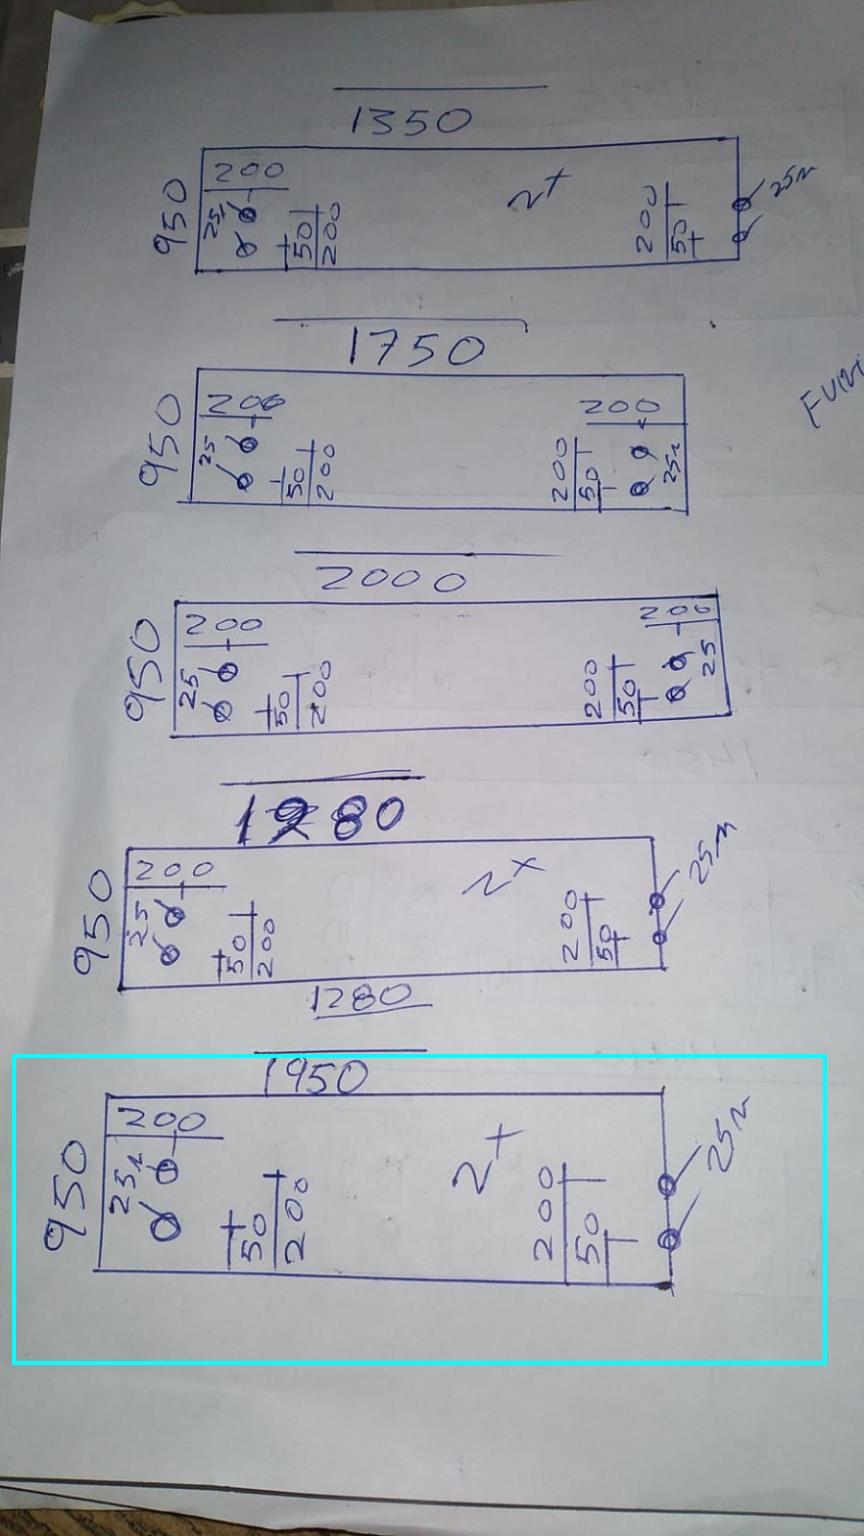 1350
950
200
25
50
200
2x
200
50
25m
1750
950
200
25
50
200
200
50
200
25m
2000
950
200
25
50
200
200
50
200
25
1280
950
200
25
50
200
2x
200
50
25m
1280
1950
950
200
25m
50
200
2x
200
50
25m